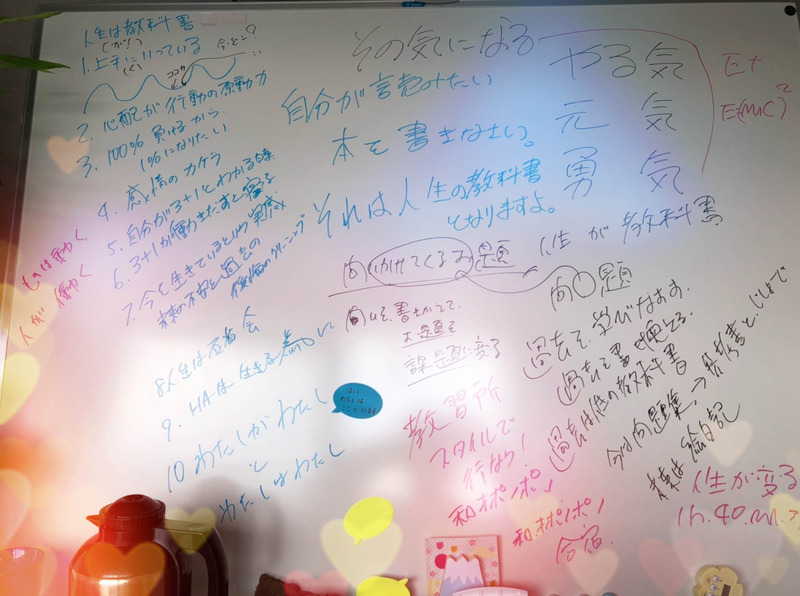 人生は教科書
(が!)
1. 上手にいっている
ココロ
2. 心配が行動の原動力
3. 100% 負けるから
1%になりたい
4. 感情のカケラ
5. 自分が3+1とわかる
6. 3+1が動き
7. 今を生きているという実感
未来の不安と過去の
後悔のクリーニング
ものは動く
人が働く
8. 人生は
9. HAは生きる
10 わたしがわたし
と
わたしはわたし
その気になる
やる気
元気
勇気
E+
E(MC)²
自分が読みたい
本を書きなさい。
それは人生の教科書
となりますよ。
向かけてくるお題
人生が教科書
問〇題
書きかえて、
お題を
課題に変る
過去を学びなおす。
過去を書き
過去は俺の教科書
今は問題集→参考書
未来は絵日記
はい
わたしは
教習所
スタイルで
行なう!
和ポンポン
和ポンポン
合宿
人生が変る
1h. 40.m.